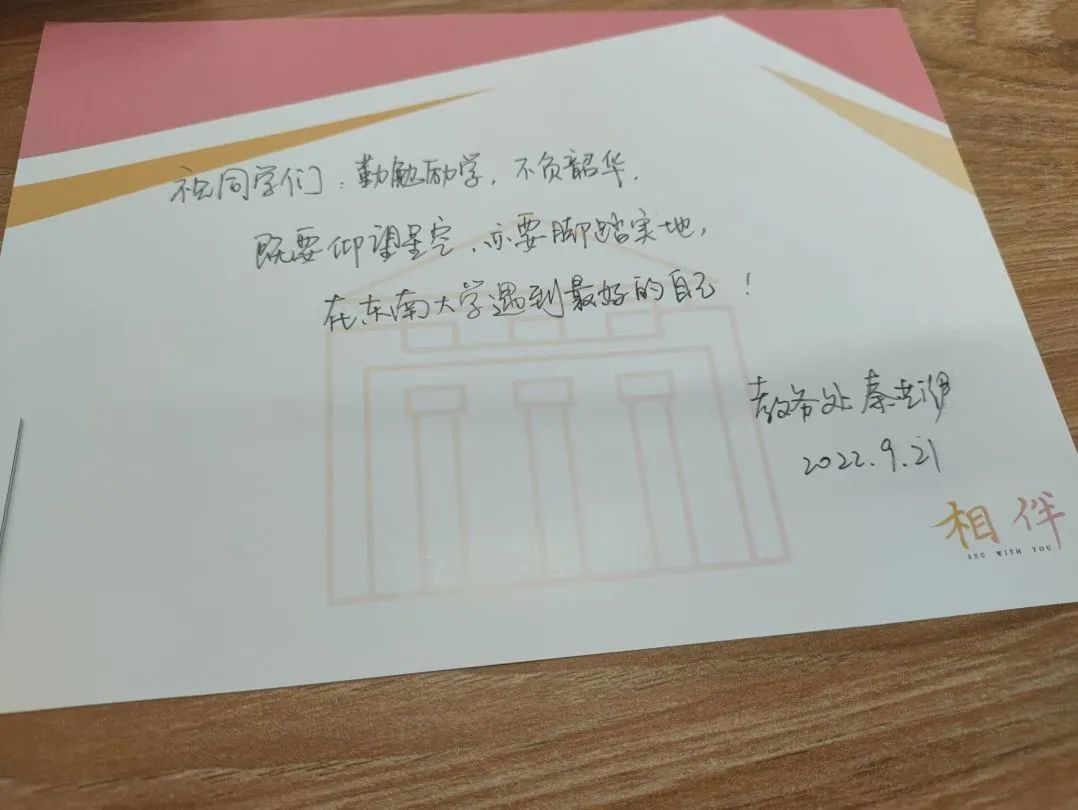 祝同学们：勤勉励学，不负韶华，
既要仰望星空，亦要脚踏实地，
在东南大学遇到最好的自己！
教务处 秦
2022.9.21
相伴
SEU WITH YOU